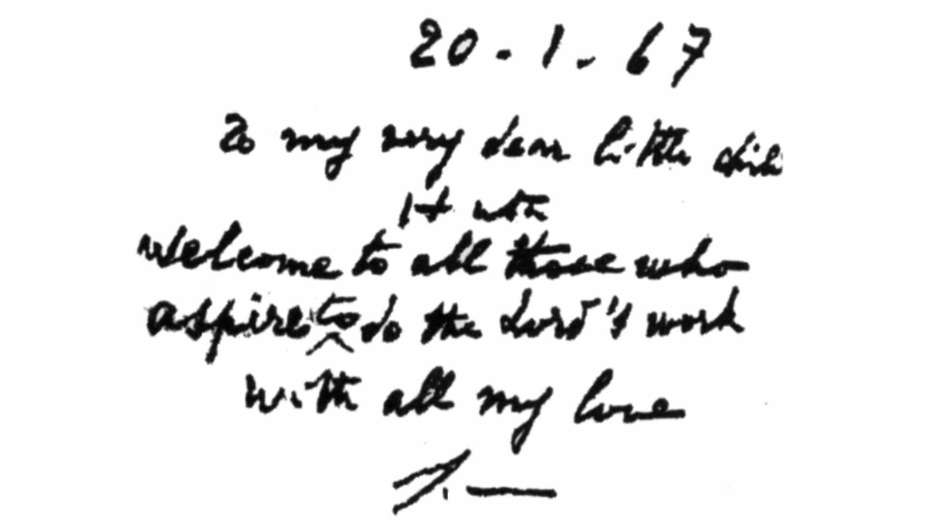 20.1.67
To my very dear little
welcome to all those who
aspire to do the Lord's work
with all my love